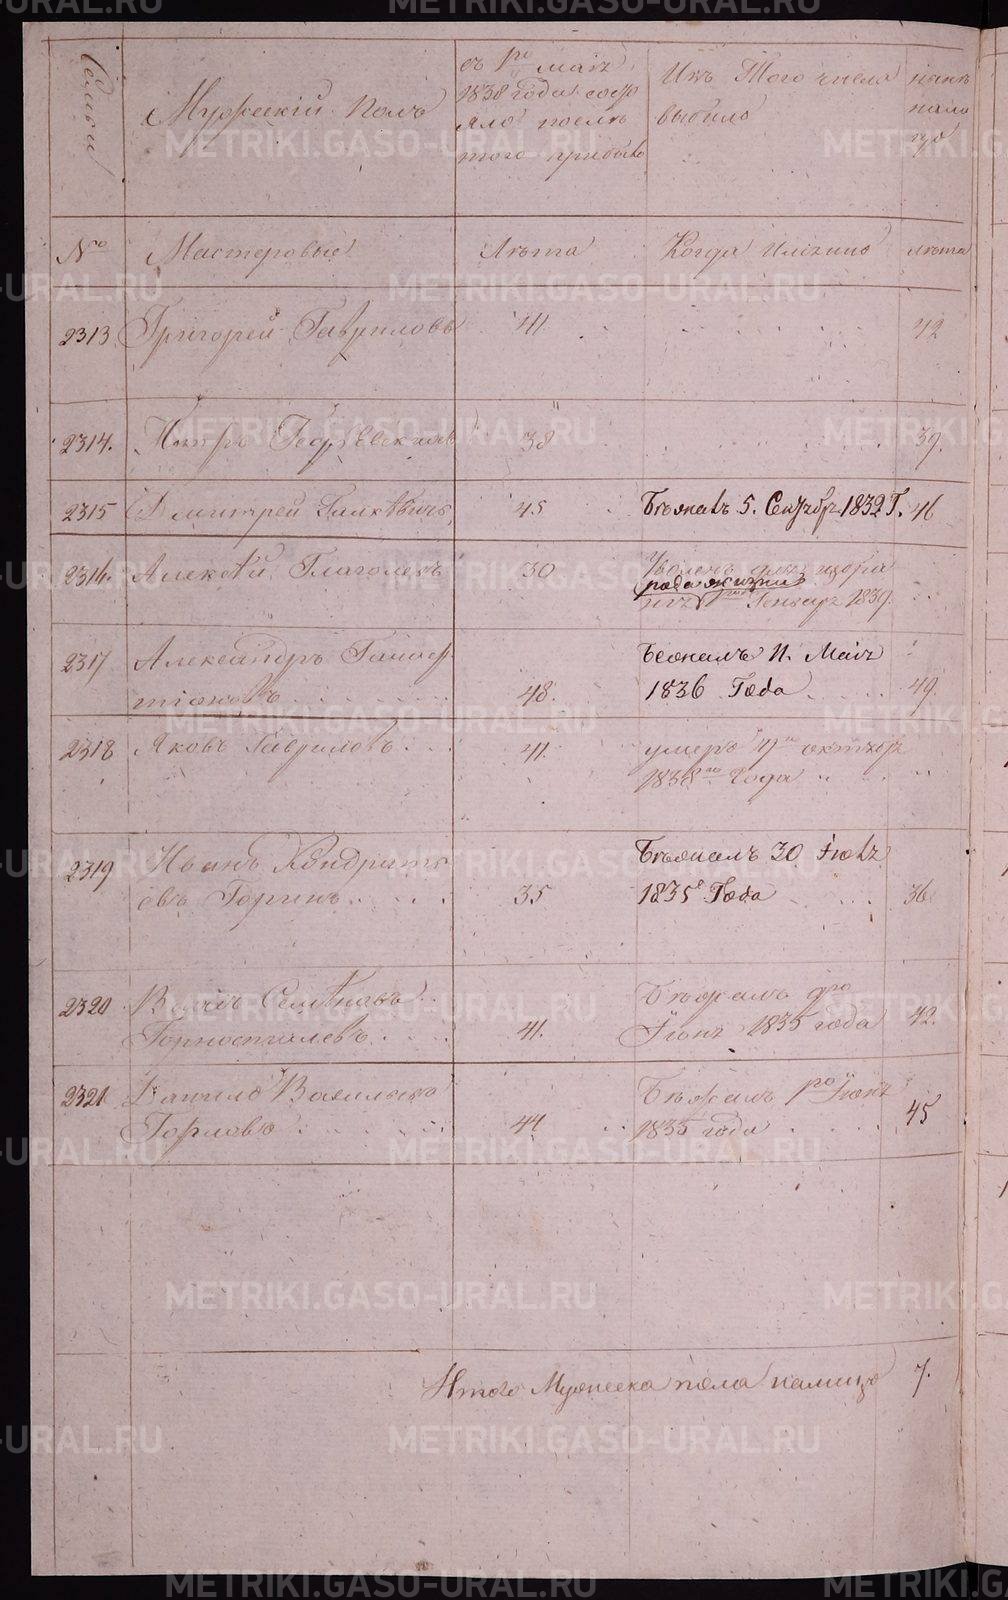 METRIKI.GASO-URAL.RU
Семьи
Мужескій Полъ
съ 1го маія
1838 года состо
яло и послѣ
того прибыло
Изъ Того числа
выбыло
нынѣ
на ли
цо
No
Мастеровые
Лѣта
Когда Имянно
лѣта
2313 Григорей Гавриловъ 41 42
2314. Петръ Георгіевскихъ 38 39.
2315 Дмитрей 45 Бѣжалъ 5. Сентябр 1832 Г. 46
2316. Алексѣй Глаголевъ 30 Уволенъ для
рода жизни
1го Генваря 1839.
2317 Александръ
48. Бежалъ 11. Маія
1836 Года 49.
2318 Яковъ Гавриловъ 41. умеръ октября
1838го Года
2319 Иванъ Кондрать
евъ Горинъ 35 Бѣжалъ 30 Июля
1835 Года 36
2320 Семеновъ
Горностаевъ 41. Бѣжалъ
Іюня 1835 года 42.
2321 Данило Васильевъ
Горловъ 44 Бѣжалъ 1го Іюня
1835 года 45
Итого Мужеска пола налицо 7.